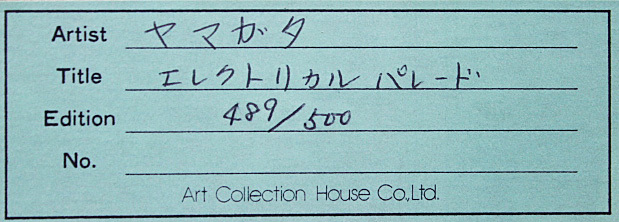 Artist ヤマガタ
Title エレクトリカル パレード
Edition 489/500
No.
Art Collection House Co,.Ltd.